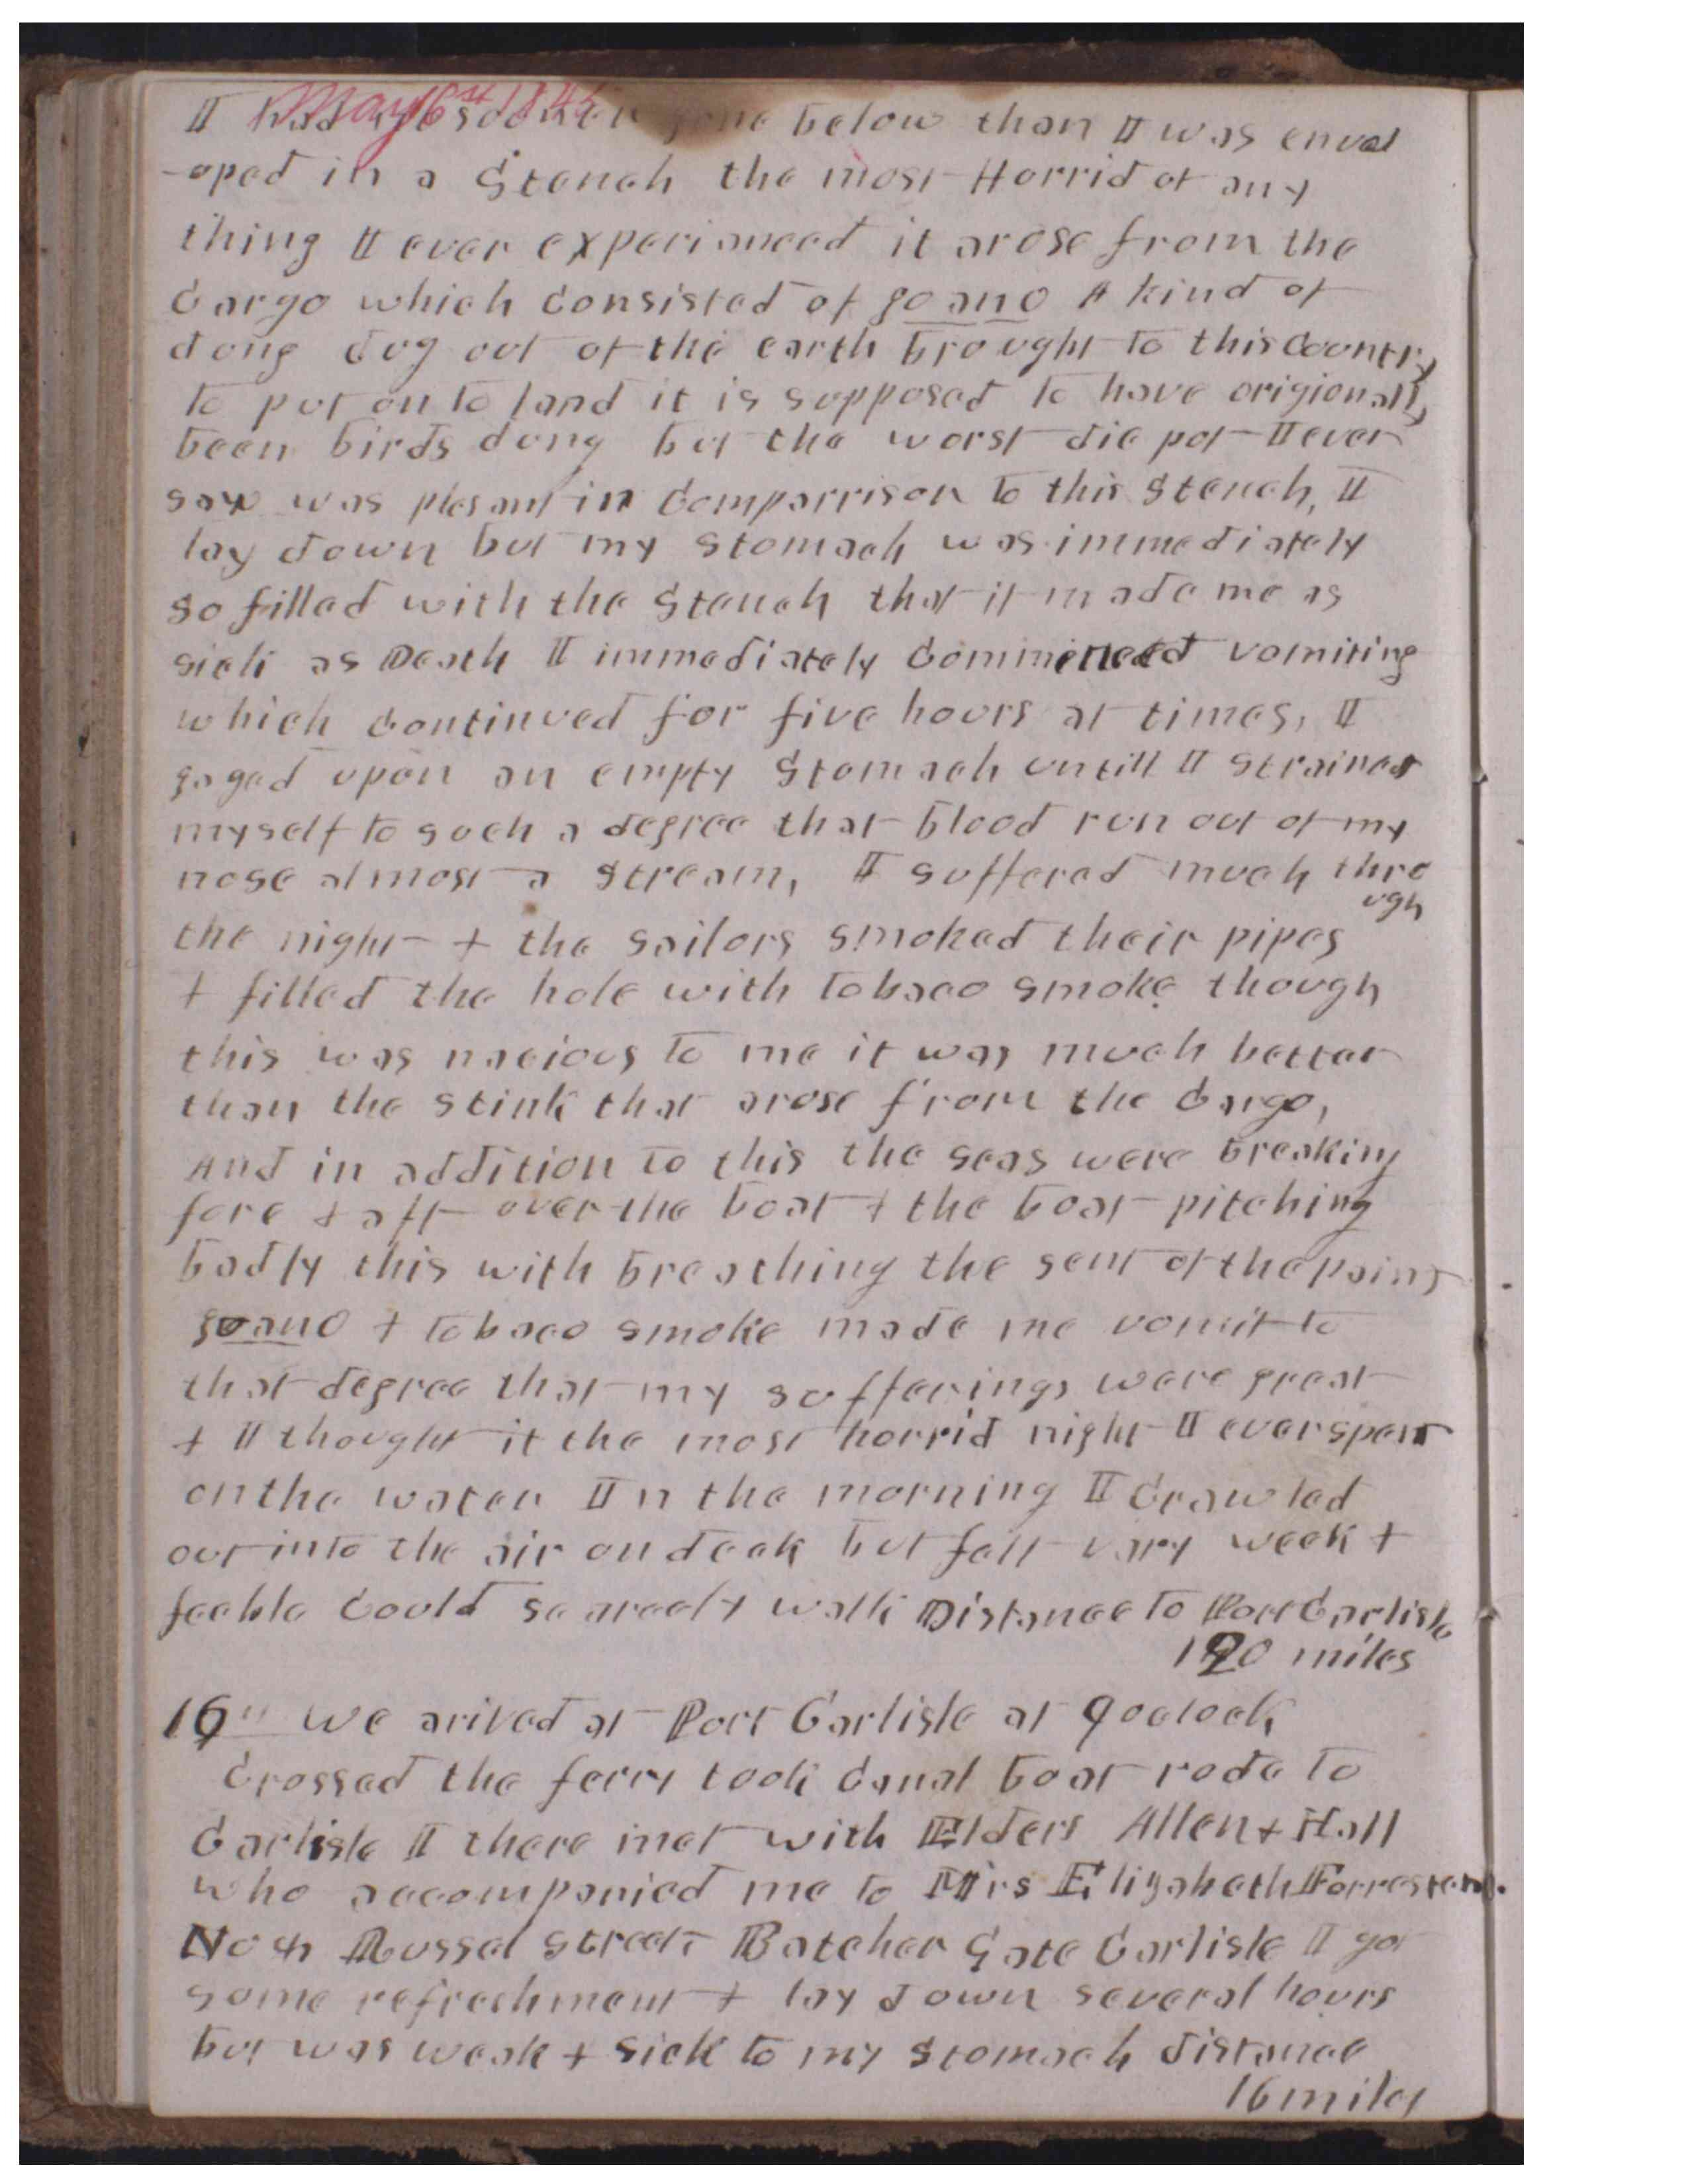 May 16st 1845
I had no sooner gone below than I was envel
-oped in a Stench the most Horrid of any
thing I ever experianced it arose from the
Cargo which Consisted of goano A kind of
dung dug out of the earth brought to this Country
to put on to land it is supposed to have origionally
been birds dung but the worst die pot I ever
saw was plesant in Comparrison to this Stench, I
lay down but my stomach was immediately
so filled with the Stench that it made me as
sick as Death I immediately Commenced vomiting
which Continued for five hours at times, I
gaged upon an empty Stomach untill I strained
myself to such a degree that blood run out of my
nose almost a stream, I suffered much thro
ugh
the night + the sailors smoked their pipes
+ filled the hole with tobaco smoke though
this was nacious to me it was much better
than the stink that arose from the Cargo,
And in addition to this the seas were breaking
fore + aft over the boat + the boat pitching
badly this with breathing the sent of the paint
goano + tobaco smoke made me vomit to
that degree that my sufferings were great
+ I thought it the most horrid night I ever spent
on the water In the morning I Crawled
out into the air on deck but felt vary week +
feeble Could scarcely walk Distance to Port Carlisle
120 miles
16" we arived at Port Carlisle at 9 oclock
Crossed the ferry took Canal boat rode to
Carlisle I there met with Elders Allen + Hall
who accompanied me to Mrs Elizabeth Forresters.
No Russel Street Botcher Gate Carlisle I got
some refreshment + lay down several hours
but was weak + sick to my stomach distance
16 miles